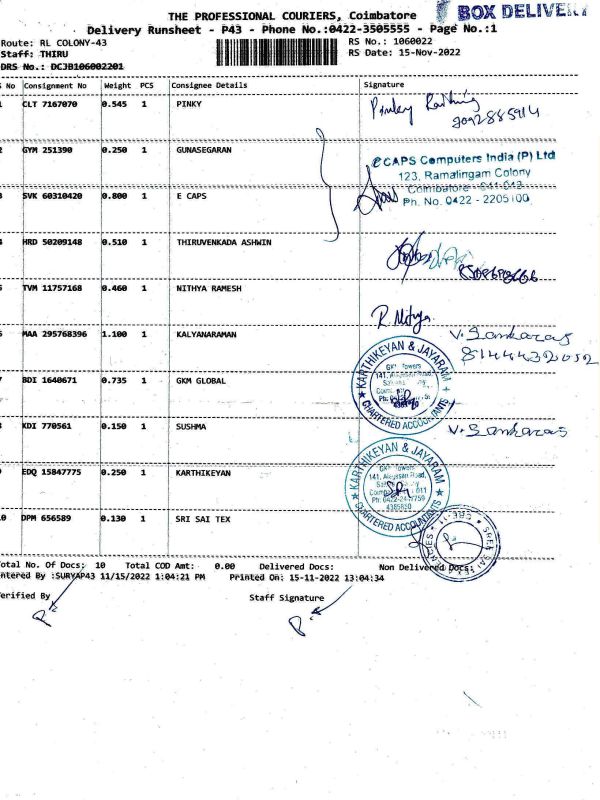 THE PROFESSIONAL COURIERS, Coimbatore
BOX DELIVERY
Delivery Runsheet - P43 - Phone No.:0422-3505555 - Page No.:1
Route: RL COLONY-43
RS No.: 1060022
Staff: THIRU
RS Date: 15-Nov-2022
DRS No.: DCJB106002201
No Consignment No Weight PCS Consignee Details Signature
CLT 7167070 0.545 1 PINKY
Pinky
GYM 251390 0.250 1 GUNASEGARAN
eCAPS Computers India (P) Ltd
123, Ramalingam Colony
Coimbatore - 641 043
Ph. No. 0422 - 2205100
SVK 60310420 0.800 1 E CAPS
HRD 50209148 0.510 1 THIRUVENKADA ASHWIN
TVM 11757168 0.460 1 NITHYA RAMESH
R. Nithya
MAA 295768396 1.100 1 KALYANARAMAN
V. Sankaras
8144432052
BDI 1640671 0.735 1 GKM GLOBAL
KARTHIKEYAN & JAYARAM
CHARTERED ACCOUNTANTS
KDI 770561 0.150 1 SUSHMA
V. Sankaras
EDQ 15847775 0.250 1 KARTHIKEYAN
KARTHIKEYAN & JAYARAM
CHARTERED ACCOUNTANTS
DPM 656589 0.130 1 SRI SAI TEX
Total No. Of Docs: 10 Total COD Amt: 0.00 Delivered Docs: Non Delivered Docs:
ntered By :SURYAP43 11/15/2022 1:04:21 PM Printed On: 15-11-2022 13:04:34
erified By Staff Signature